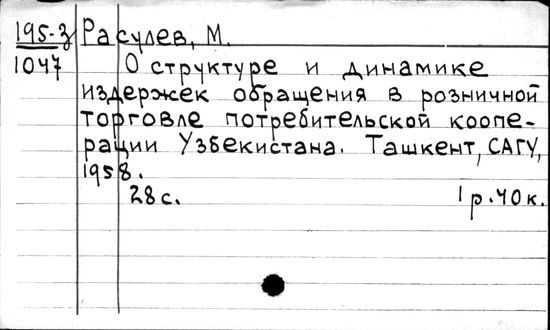 195-3 Расулев, М.
1047 О структуре и динамике
издержек обращения в розничной
торговле потребительской коопе-
рации Узбекистана. Ташкент, САГУ,
1958.
28 с. 1 р. 40 к.